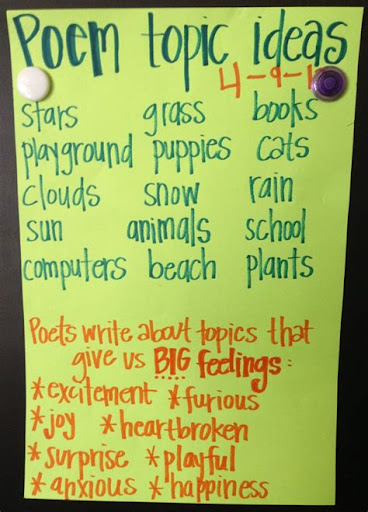 Poem topic ideas
4-9-1
stars grass books
playground puppies cats
clouds snow rain
sun animals school
computers beach plants
Poets write about topics that
give us BIG feelings:
*excitement *furious
*joy *heartbroken
*surprise *playful
*anxious *happiness